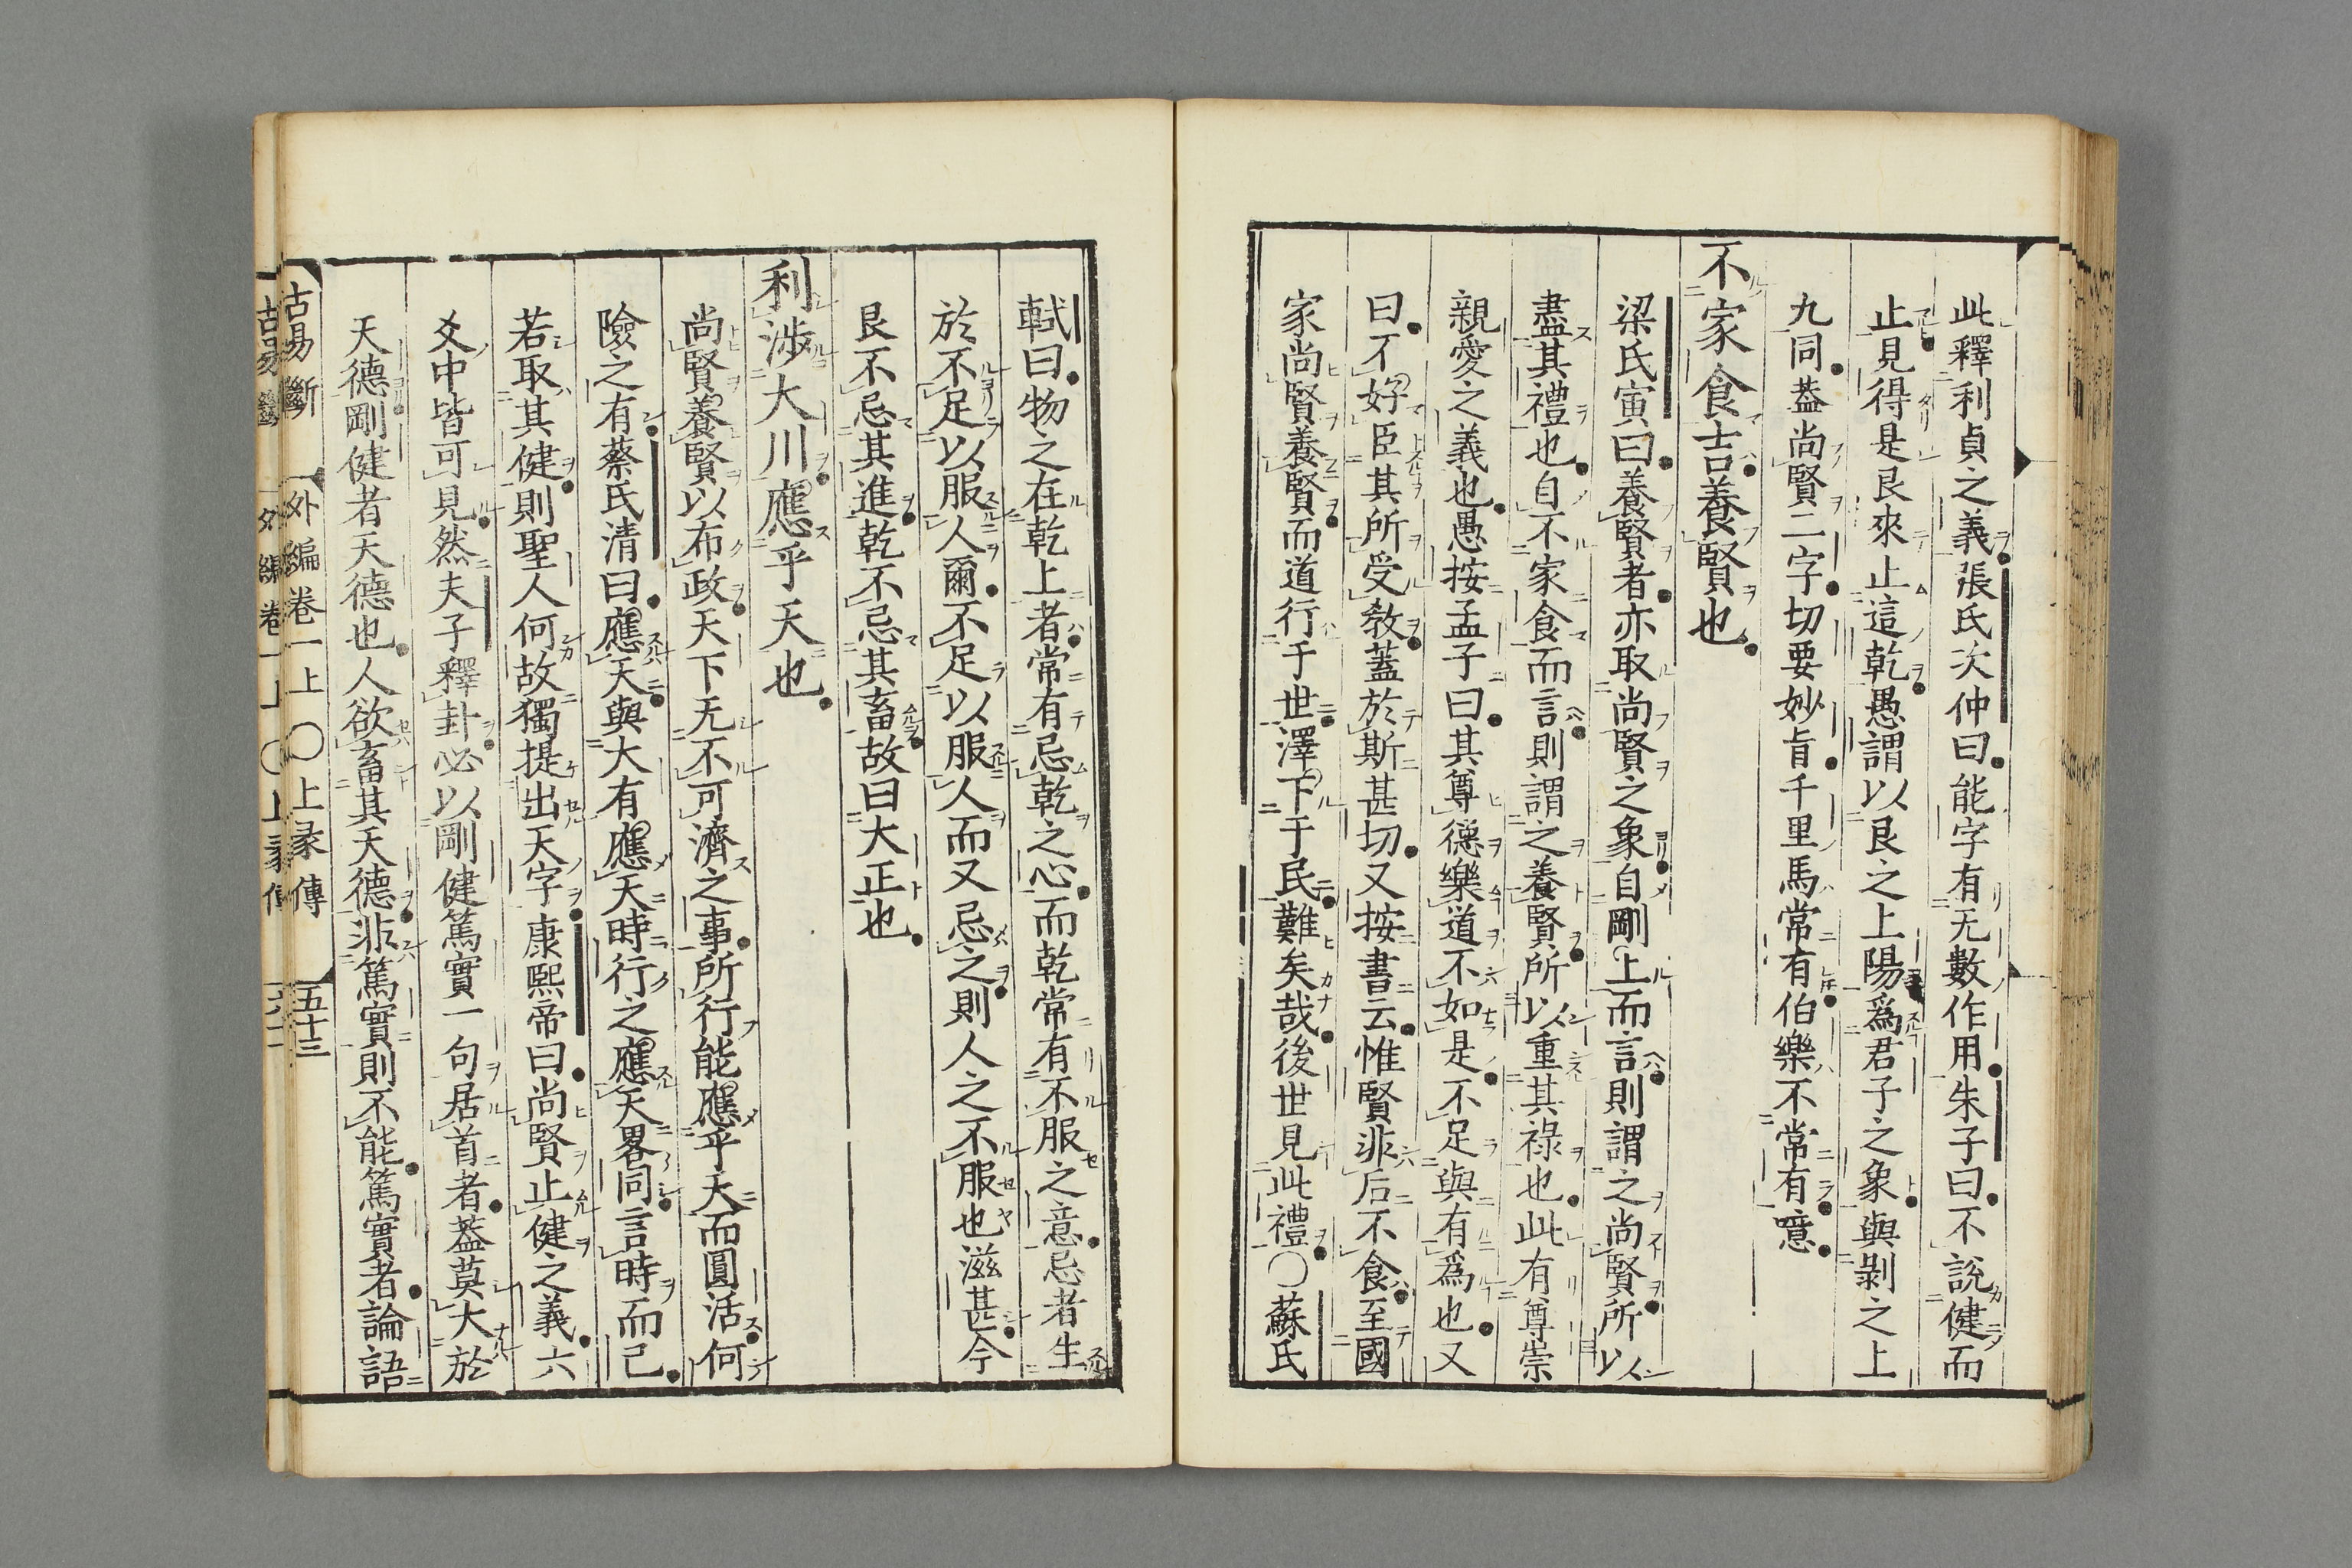 此釋利貞之義張氏次仲曰能字有无數作用朱子曰不說健而
止見得是艮來止這乾愚謂以艮之上陽爲君子之象與剝之上
九同葢尚賢二字切要妙旨千里馬常有伯樂不常有噫
不家食吉養賢也
梁氏寅曰養賢者亦取尚賢之象自剛上而言則謂之尚賢所以
盡其禮也自不家食而言則謂之養賢所以重其祿也此有尊崇
親愛之義也愚按孟子曰其尊德樂道不如是不足與有爲也又
曰不好臣其所受敎蓋於斯甚切又按書云惟賢非后不食至國
家尚賢養賢而道行于世澤下于民難矣哉後世見此禮〇蘇氏
軾曰物之在乾上者常有忌乾之心而乾常有不服之意忌者生
於不足以服人爾不足以服人而又忌之則人之不服也滋甚今
艮不忌其進乾不忌其畜故曰大正也
利涉大川應乎天也
尚賢養賢以布政天下无不可濟之事所行能應乎天而圓活何
險之有蔡氏清曰應天與大有應天時行之應天畧同言時而已
若取其健則聖人何故獨提出天字康熙帝曰尚賢止健之義六
爻中皆可見然夫子釋卦必以剛健篤實一句居首者葢莫大於
天德剛健者天德也人欲畜其天德非篤實則不能篤實者論語
古易斷 外編卷一上 〇上彖傳 五十三